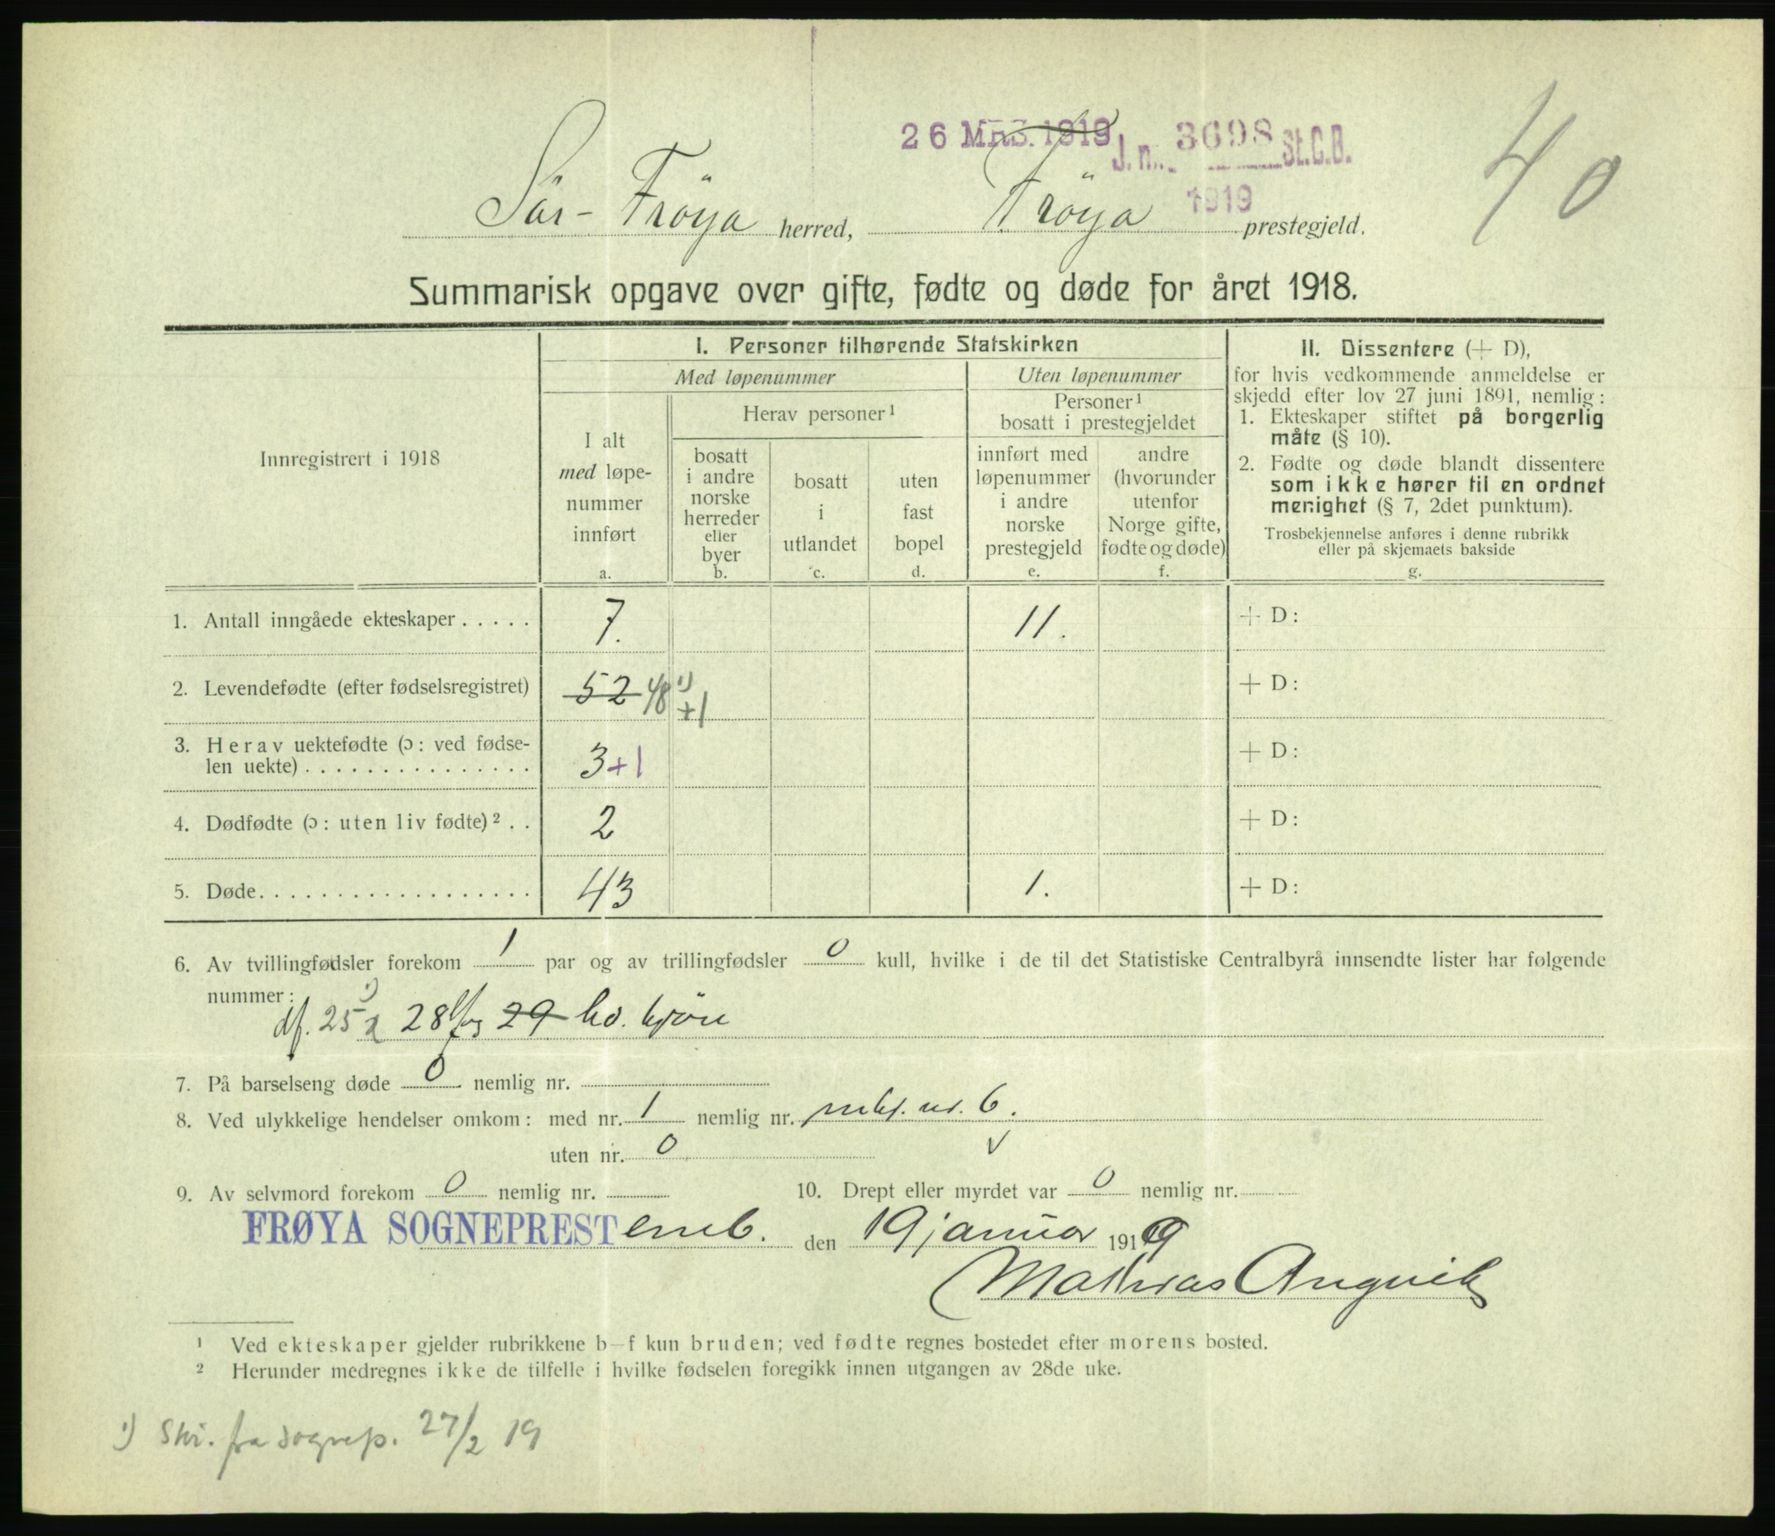 26 MRS. 1919 J. n. 3698 St.C.B.
1919
40
Sør-Frøya herred, Frøya prestegjeld.
Summarisk opgave over gifte, fødte og døde for året 1918.
Innregistrert i 1918
I. Personer tilhørende Statskirken
Med løpenummer
Uten løpenummer
Herav personer ¹
Personer ¹
bosatt i prestegjeldet
I alt
med løpe-
nummer
innført
a.
bosatt
i andre
norske
herreder
eller
byer
b.
bosatt
i
utlandet
c.
uten
fast
bopel
d.
innført med
løpenummer
i andre
norske
prestegjeld
e.
andre
(hvorunder
utenfor
Norge gifte,
fødte og døde)
f.
II. Dissentere (+ D),
for hvis vedkommende anmeldelse er
skjedd efter lov 27 juni 1891, nemlig:
1. Ekteskaper stiftet på borgerlig
måte (§ 10).
2. Fødte og døde blandt dissentere
som ikke hører til en ordnet
menighet (§ 7, 2det punktum).
Trosbekjennelse anføres i denne rubrikk
eller på skjemaets bakside
g.
1. Antall inngåede ekteskaper..... 7. 11. + D:
2. Levendefødte (efter fødselsregistret) 52 48 ¹) +1 + D:
3. Herav uektefødte (ɔ: ved fødse-
len uekte)............... 3+1 + D:
4. Dødfødte (ɔ: uten liv fødte) ² .. 2 + D:
5. Døde.................. 43 1. + D:
6. Av tvillingfødsler forekom 1 par og av trillingfødsler 0 kull, hvilke i de til det Statistiske Centralbyrå innsendte lister har følgende
nummer:
df. 25 ¹) 28 og 29 kv. kjön
7. På barselseng døde 0 nemlig nr.
8. Ved ulykkelige hendelser omkom: med nr. 1 nemlig nr. mkj. nr. 6.
uten nr. 0 v
9. Av selvmord forekom 0 nemlig nr. 10. Drept eller myrdet var 0 nemlig nr.
FRØYA SOGNEPRESTemb. den 19 januar 1919
Mathias Angvik
¹ Ved ekteskaper gjelder rubrikkene b–f kun bruden; ved fødte regnes bostedet efter morens bosted.
² Herunder medregnes ikke de tilfelle i hvilke fødselen foregikk innen utgangen av 28de uke.
¹) Skr. fra sognep. 27/2 19